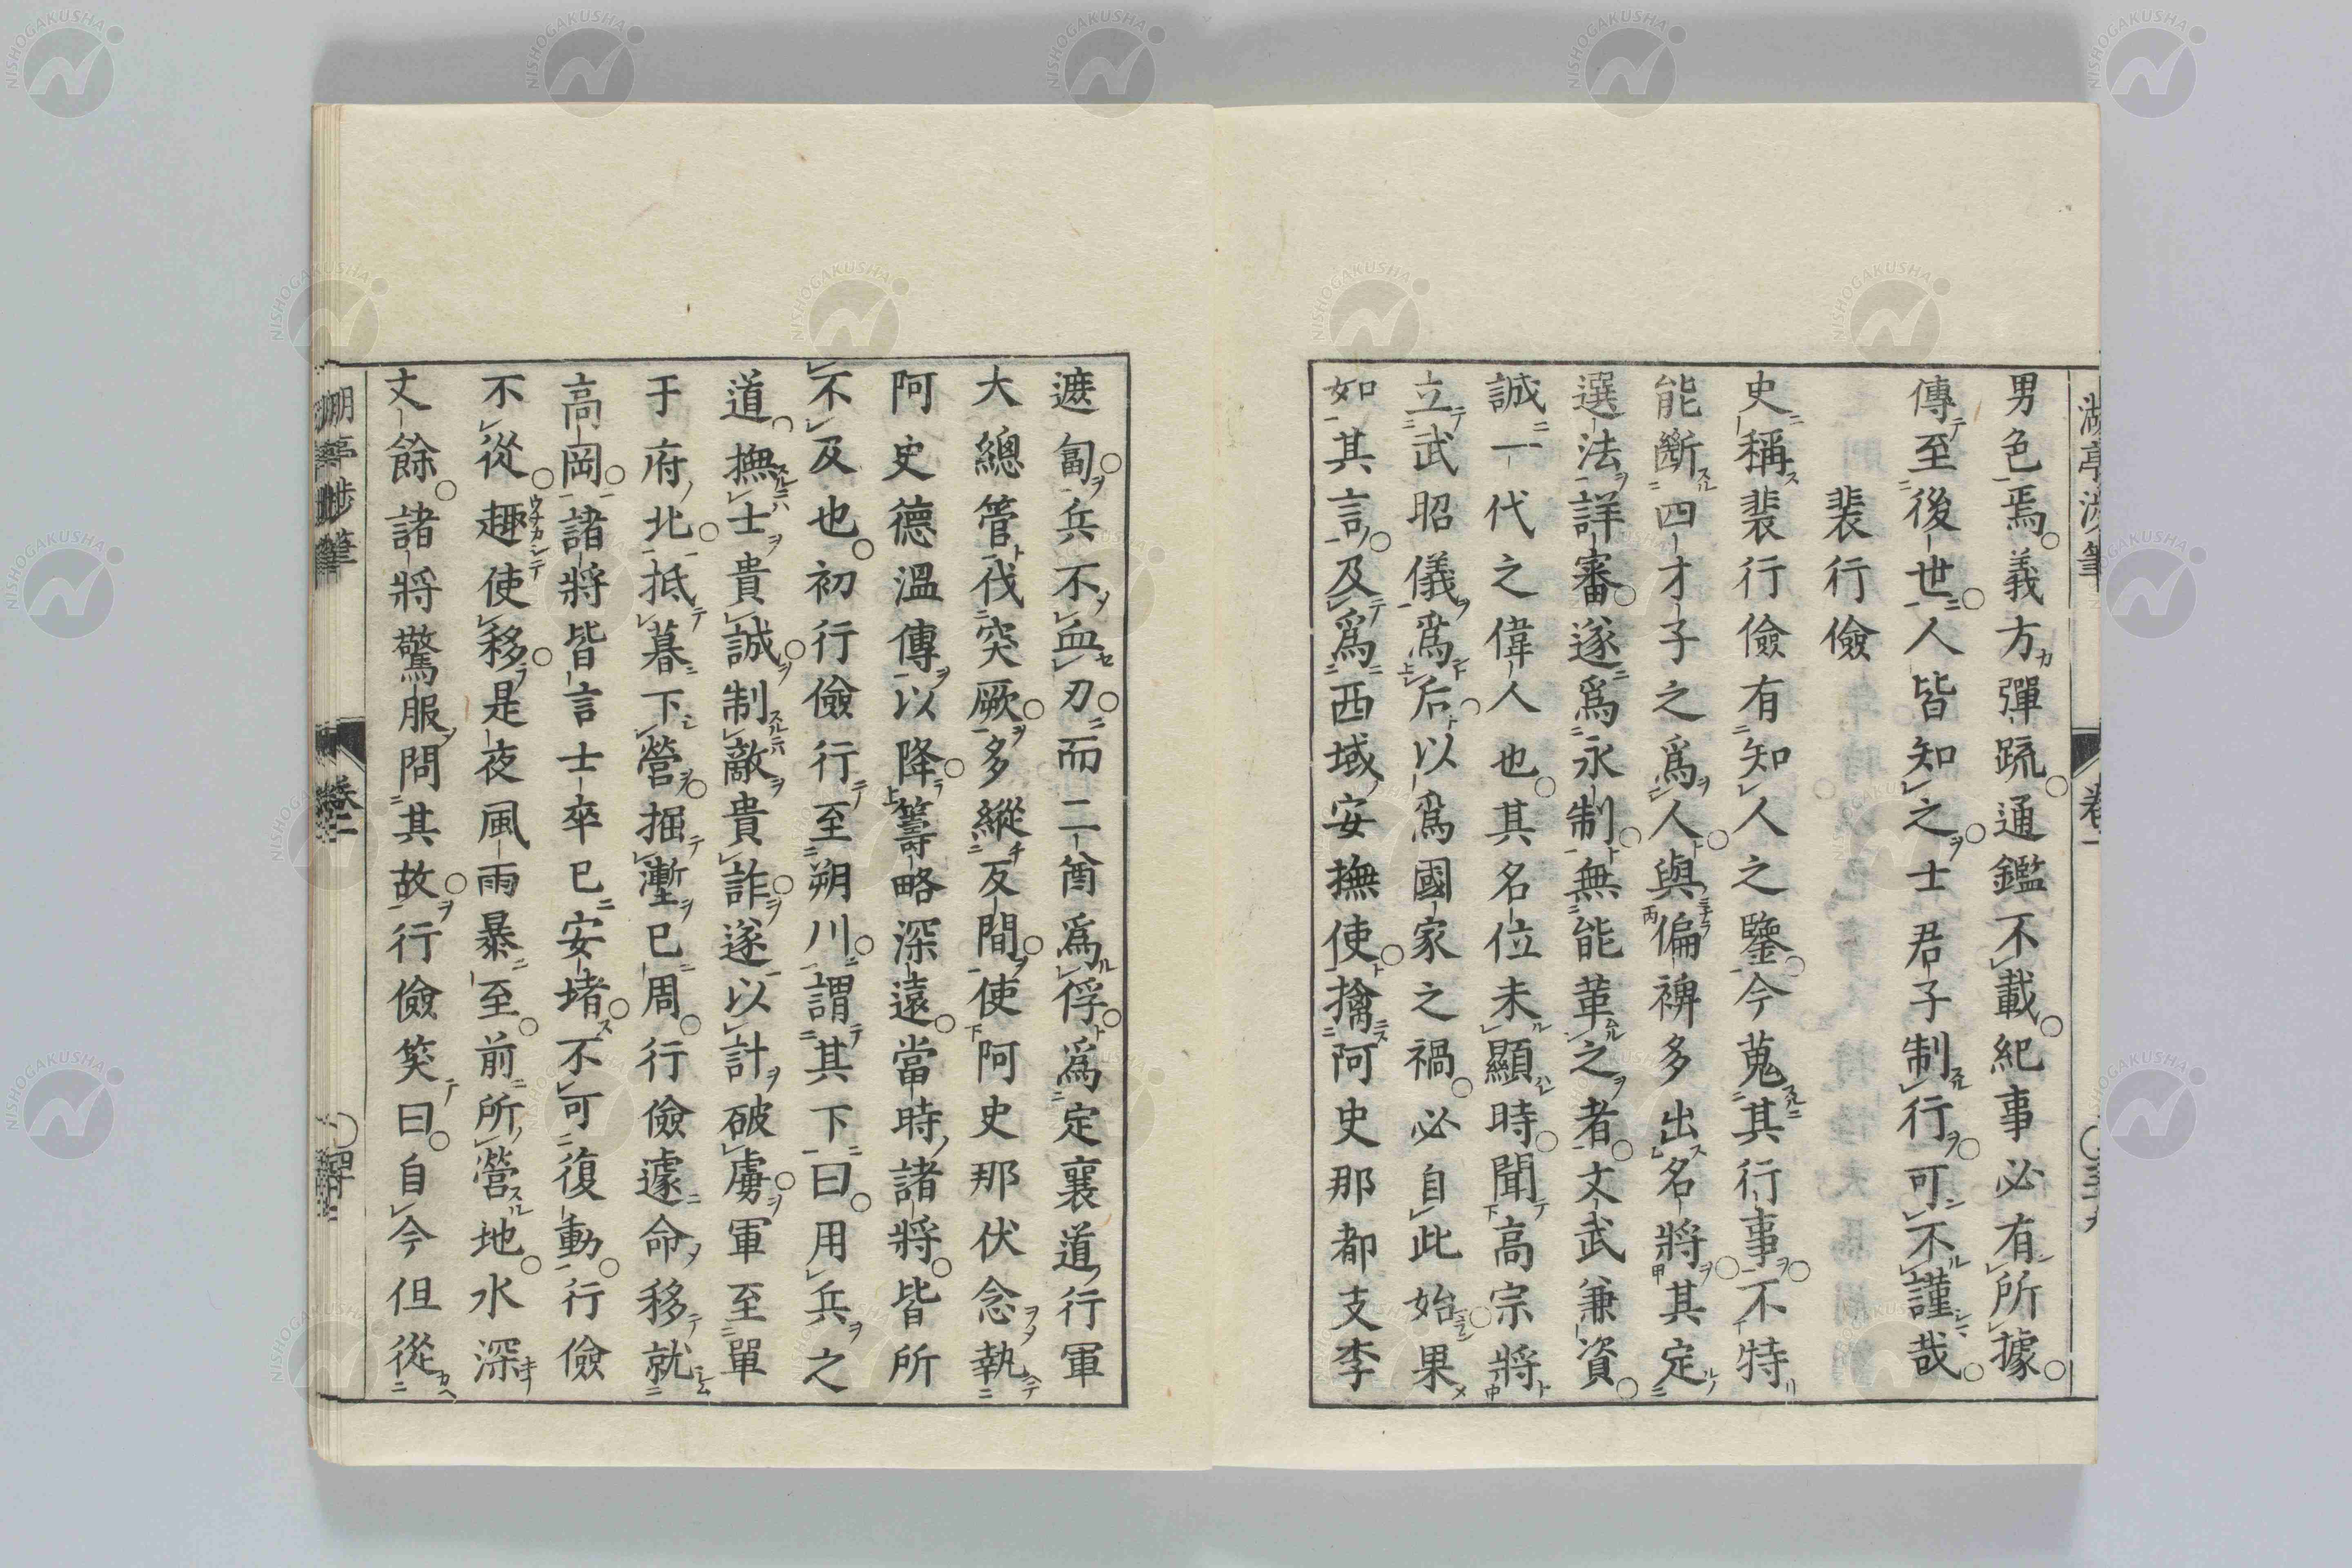 男色焉義方彈疏通鑑不載紀事必有所據
傳至後世人皆知之士君子制行可不謹哉
裴行儉
史稱裴行儉有知人之鑒今蒐其行事不特
能斷四才子之爲人與偏裨多出名將其定
選法詳審遂爲永制無能革之者文武兼資
誠一代之偉人也其名位未顯時聞高宗將
立武昭儀爲后以爲國家之禍必自此始果
如其言及爲西域安撫使擒阿史那都支李
遮匐兵不血刃而二酋爲俘爲定襄道行軍
大總管伐突厥多縱反間使阿史那伏念執
阿史德溫傳以降籌略深遠當時諸將皆所
不及也初行儉行至朔川謂其下曰用兵之
道撫士貴誠制敵貴詐遂以計破虜軍至單
于府北抵暮下營掘壍已周行儉遽命移就
高岡諸將皆言士卒已安堵不可復動行儉
不從趣使移是夜風雨暴至前所營地水深
丈餘諸將驚服問其故行儉笑曰自今但從
NISHOGAKUSHA